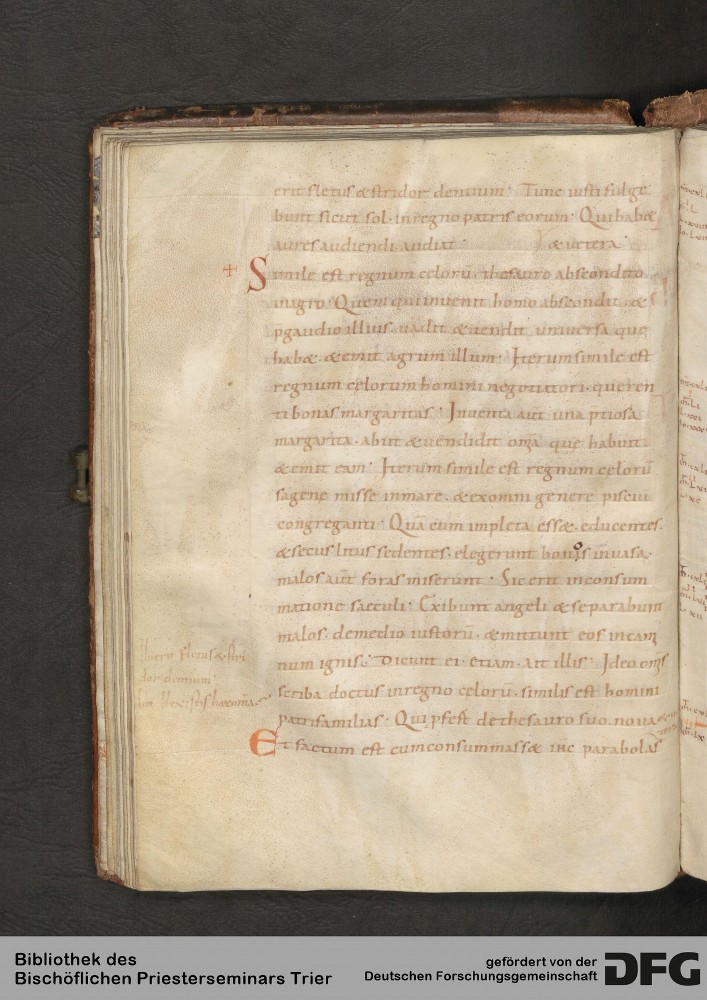 erit fletus & stridor dentium· Tunc iusti fulge
bunt sicut sol· in regno patris eorum· Qui hab&
aures audiendi audiat· & uetera·
+ Simile est regnum celorū· thesauro abscondito
in agro· Quem qui inuenit homo abscondit· &
p gaudio illius· uadit & uendit uniuersa que
hab&· & emit agrum illum· Iterum simile est
regnum celorum homini negotiatori· queren
ti bonas margaritas· Inuenta aūt una ptiosa
margarita· abiit & uendidit om̄a que habuit·
& emit eam· Iterum simile est regnum celorū
sagene misse in mare· & ex omni genere pisciū
congreganti· Quā cum impleta ess&· educentes·
& secus litus sedentes· elegerunt bonos in uasa·
malos aūt foras miserunt· Sic erit in consum
matione saeculi· Exibunt angeli & separabunt
malos· de medio iustorū· & mittunt eos in cami
num ignis· Dicunt ei· etiam· ait illis· Ideo om̄s
scriba doctus in regno celorū· similis est homini
patrifamilias· Qui pfert de thesauro suo· noua
Et factum est cum consummass& ihc parabolas
ibi erit fletus & stri
dor dentium·
Intellexistis haec om̄a·
Bibliothek des
Bischöflichen Priesterseminars Trier
gefördert von der
Deutschen Forschungsgemeinschaft
DFG